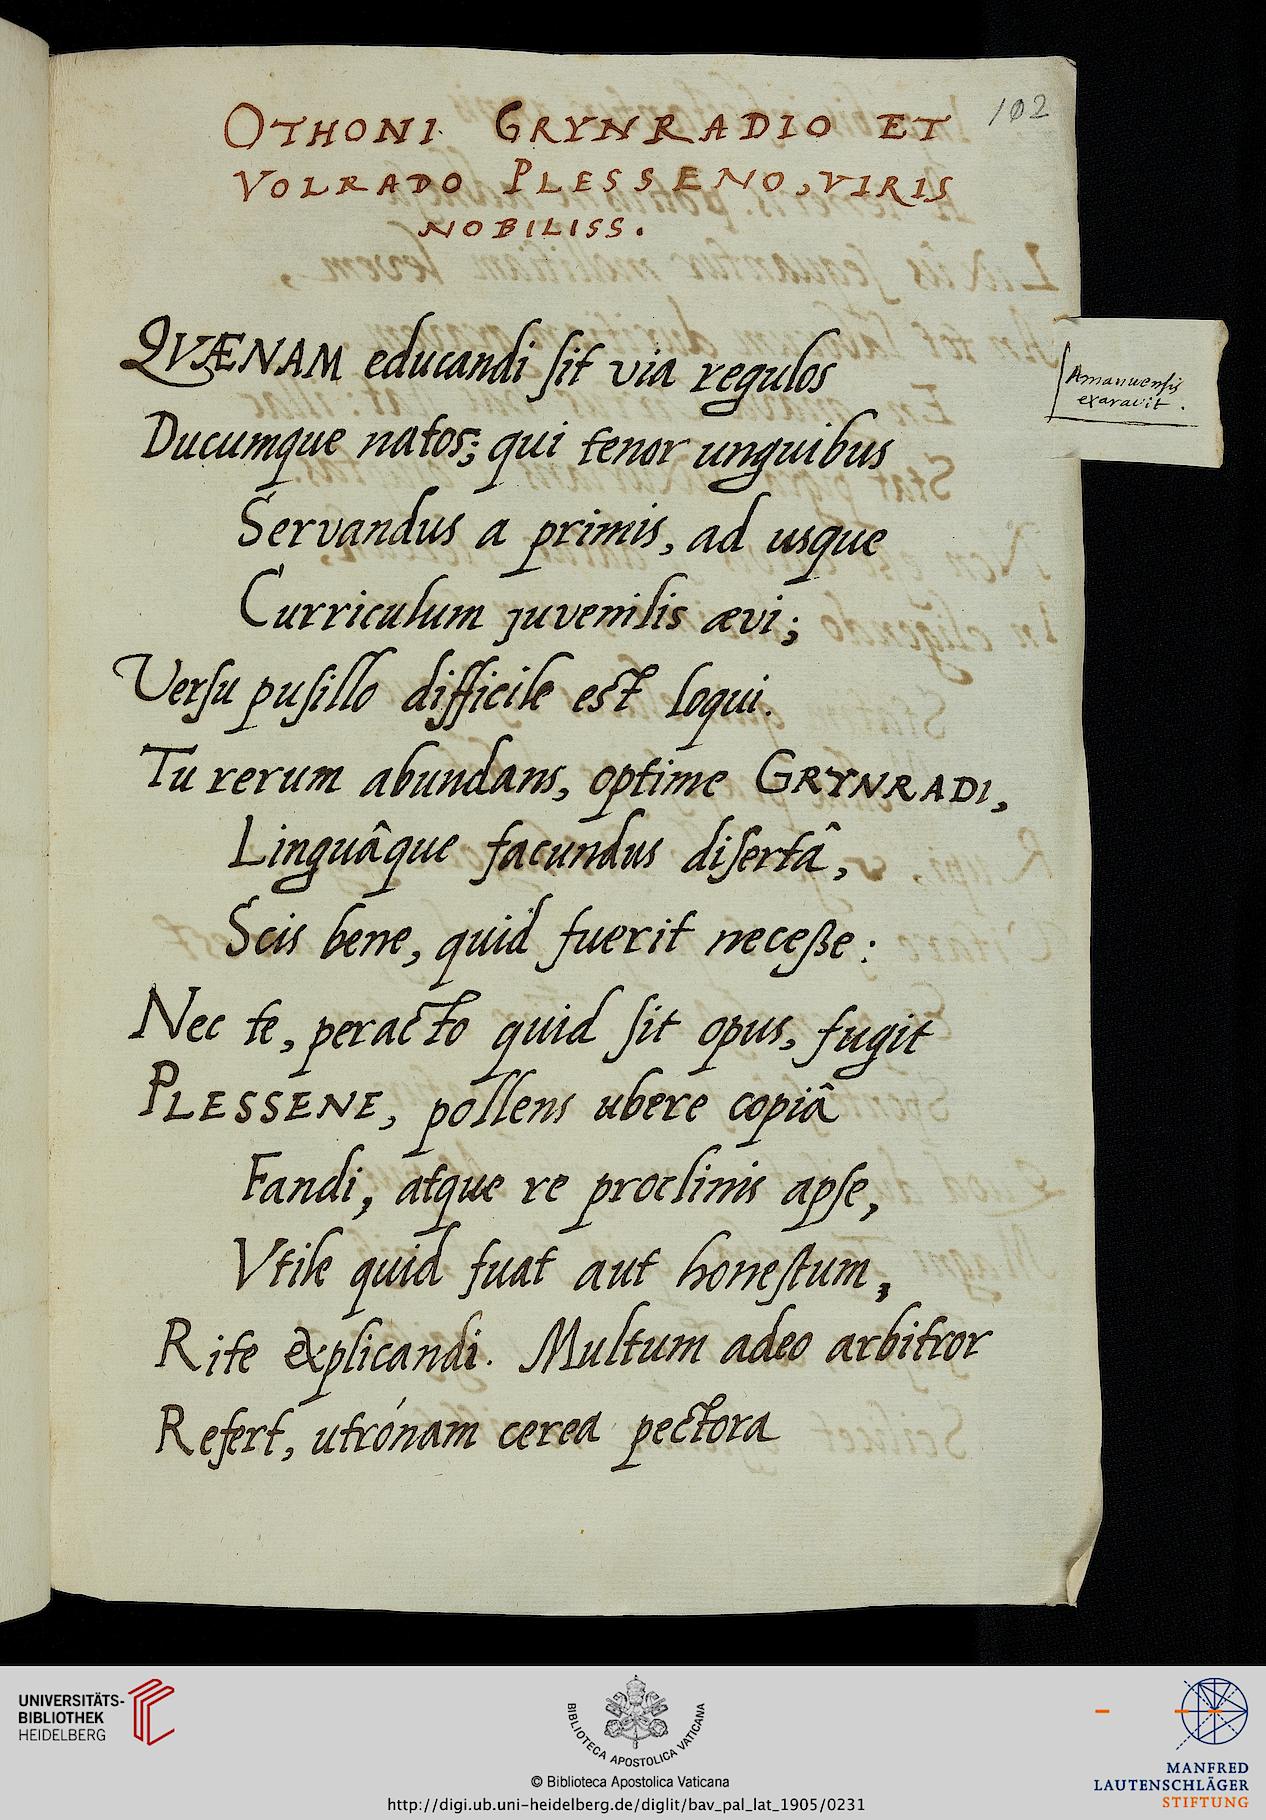 102
OTHONI GRYNRADIO ET
VOLRADO PLESSENO, VIRIS
NOBILISS.
QVÆNAM educandi ſit via regulos
Ducumque natos; qui tenor unguibus
Servandus a primis, ad usque
Curriculum juvenilis ævi;
Verſu puſillo difficile est loqui.
Tu rerum abundans, optime GRYNRADI,
Linguâque facundus diſertâ,
Scis bene, quid fuerit neceße:
Nec te, peracto quid ſit opus, fugit
PLESSENE, pollens ubere copiâ
Fandi, atque re proclinis apſe,
Vtile quid fuat aut honeſtum,
Rite explicandi. Multum adeo arbitror
Refert, utrónam cerea pectora
Amanuenſis
exaravit.
UNIVERSITÄTS-
BIBLIOTHEK
HEIDELBERG
BIBLIOTECA APOSTOLICA VATICANA
© Biblioteca Apostolica Vaticana
http://digi.ub.uni-heidelberg.de/diglit/bav_pal_lat_1905/0231
MANFRED
LAUTENSCHLÄGER
STIFTUNG